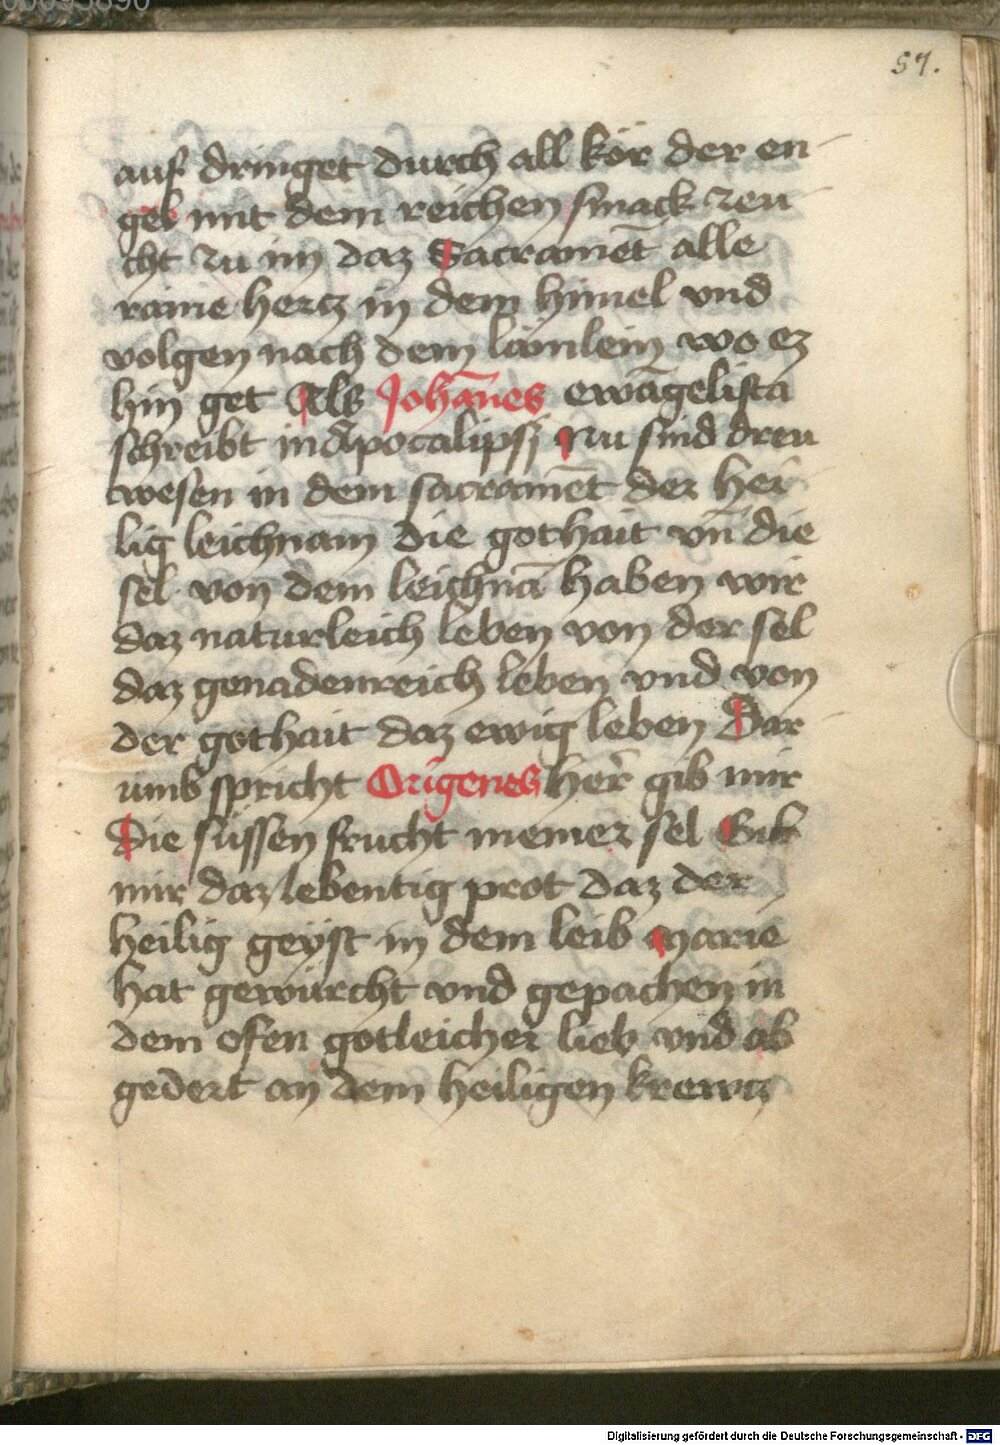 57.
auf dringet durch all kör der en
gel mit dem reichen smack zeu
cht zu im daz Sacramēt alle
raine hertz in dem himel vnd
volgen nach dem lämlein wo ez
hin get Als Johānes ewāgelista
schreibt in Apocalipsi Nu sind dreu
wesen in dem sacramēt der hei
lig leichnam die gothait vn̄ die
sel von dem leichnā haben wir
daz naturleich leben von der sel
daz genadenreich leben vnd von
der gothait daz ewig leben Dar
umb spricht Origenes her̄ gib mir
Die süssen frucht meiner sel Gib
mir daz lebentig prot daz der
heilig geÿst in dem leib Marie
hat gewürcht vnd gepachen in
dem ofen gotleicher lieb vnd ab
gedert an dem heiligen krewtz
Digitalisierung gefördert durch die Deutsche Forschungsgemeinschaft - DFG